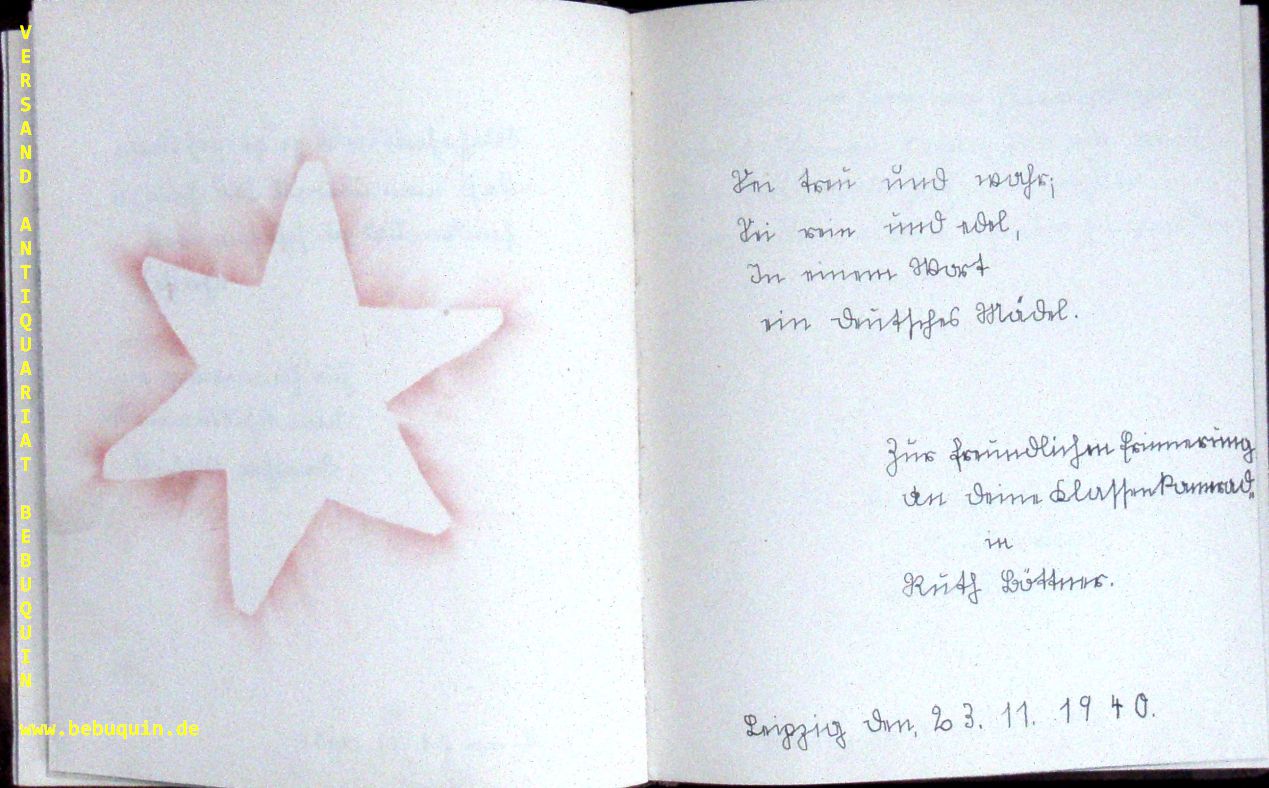 VERSAND ANTIQUARIAT BEBUQUIN
www.bebuquin.de
Sei treu und wahr;
Sei rein und edel,
In einem Wort
ein deutsches Mädel.
Zur freundlichen Erinnerung
an deine Klassenkamerad„
in
Ruth Böttner.
Leipzig den, 23. 11. 1940.